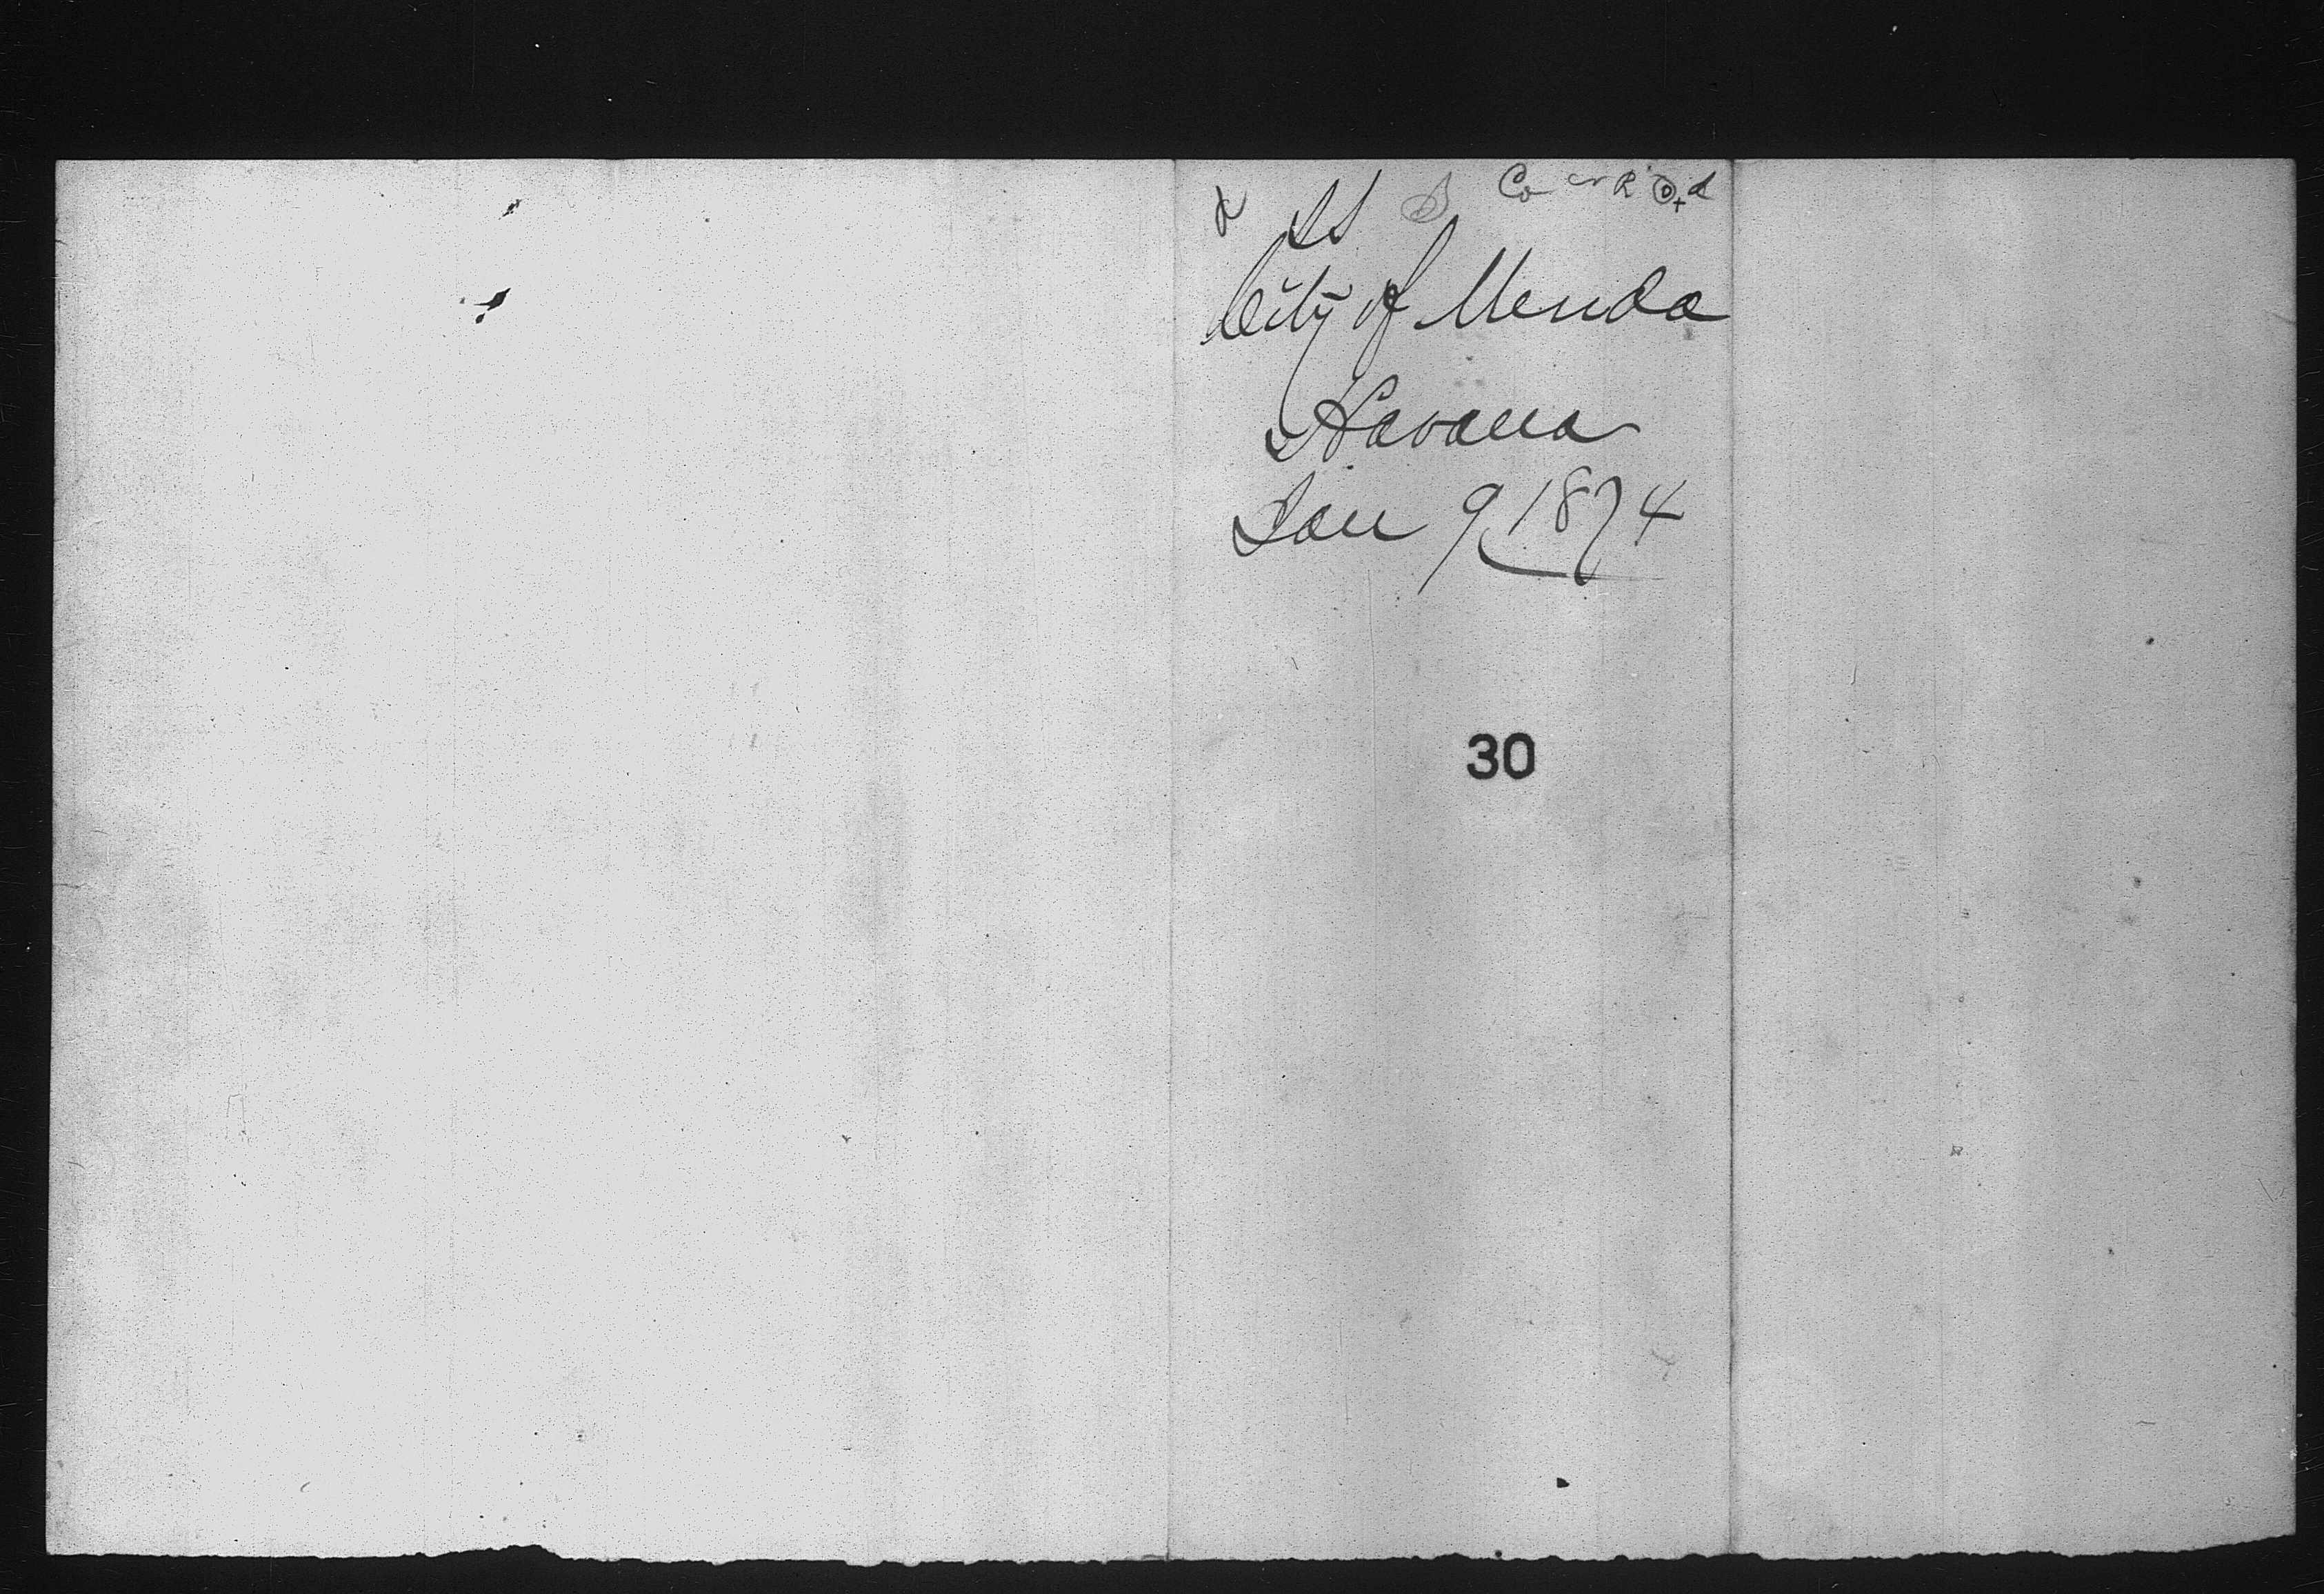 SS
City of Merida
Havana
Jan 9 1874
30